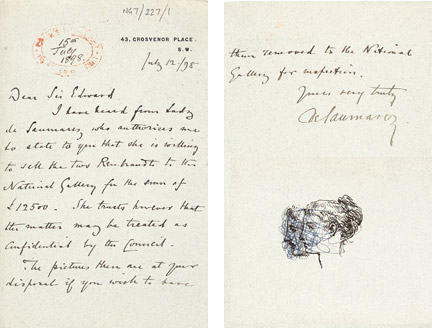 NG7/227/1
15
July
1898
43, GROSVENOR PLACE.
S.W.
July 12/98
Dear Sir Edward
I have heard from Lady
de Saumarez who authorizes me
to state to you that she is willing
to sell the two Rembrandts to the
National Gallery for the sum of
£12500. She trusts however that
the matter may be treated as
Confidential by the Council.
The pictures there are at your
disposal if you wish to have
them removed to the National
Gallery for inspection.
Yours very truly
de Saumarez